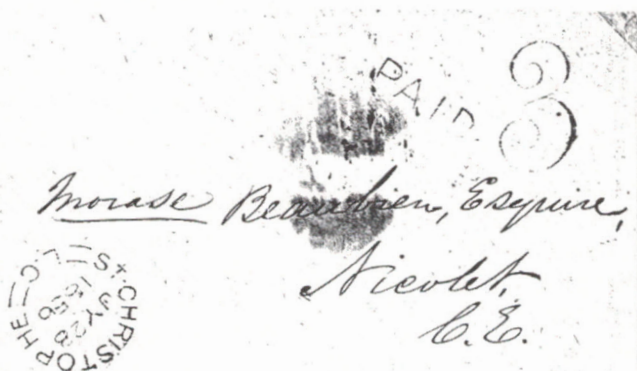 PAID 3
Morase Beaubien, Esquire,
Nicolet,
C.E.
ST CHRISTOPHE L.C
JY 28